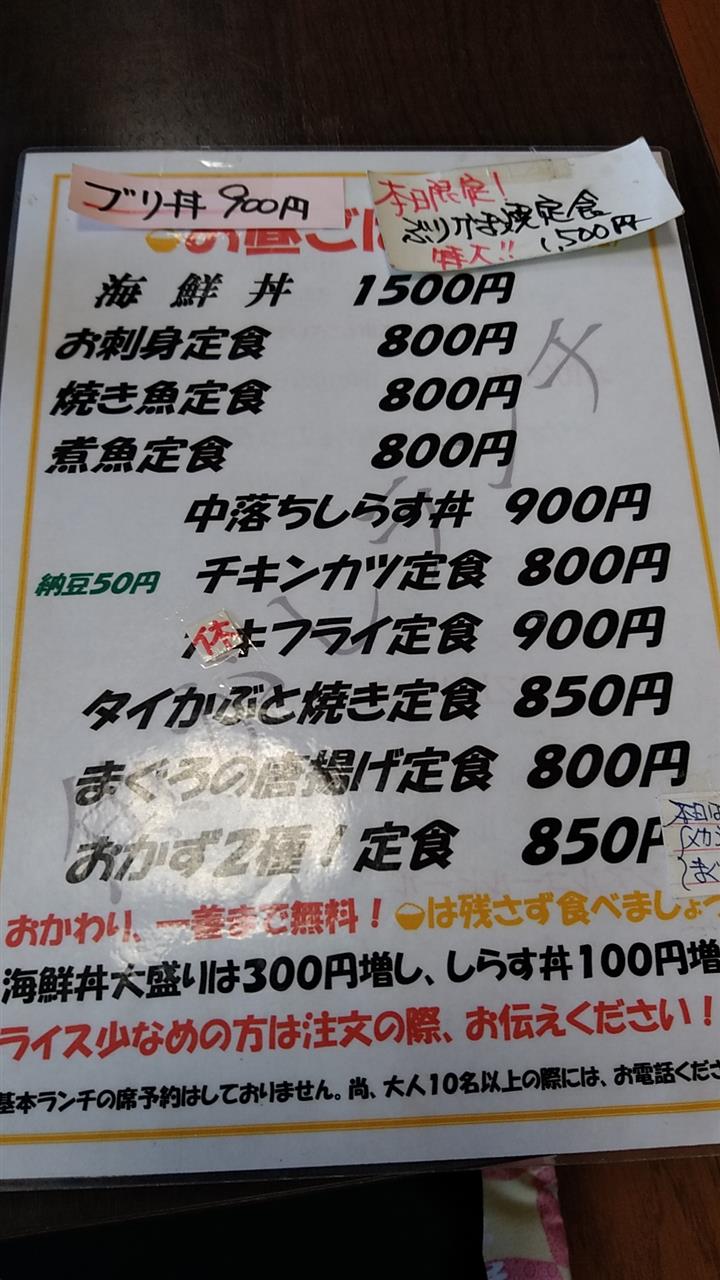 ブリ丼 900円
本日限定!
ぶりかま焼定食
特大!! 1,500円
お昼ごは
海鮮丼 1500円
お刺身定食 800円
焼き魚定食 800円
煮魚定食 800円
中落ちしらす丼 900円
納豆50円 チキンカツ定食 800円
キフライ定食 900円
タイかぶと焼き定食 850円
まぐろの唐揚げ定食 800円
おかず2種!定食 850円
本日は
メカ
まぐ
おかわり、一膳まで無料! は残さず食べましょう
海鮮丼大盛りは300円増し、しらす丼100円増
ライス少なめの方は注文の際、お伝えください!
基本ランチの席予約はしておりません。尚、大人10名以上の際には、お電話くださ